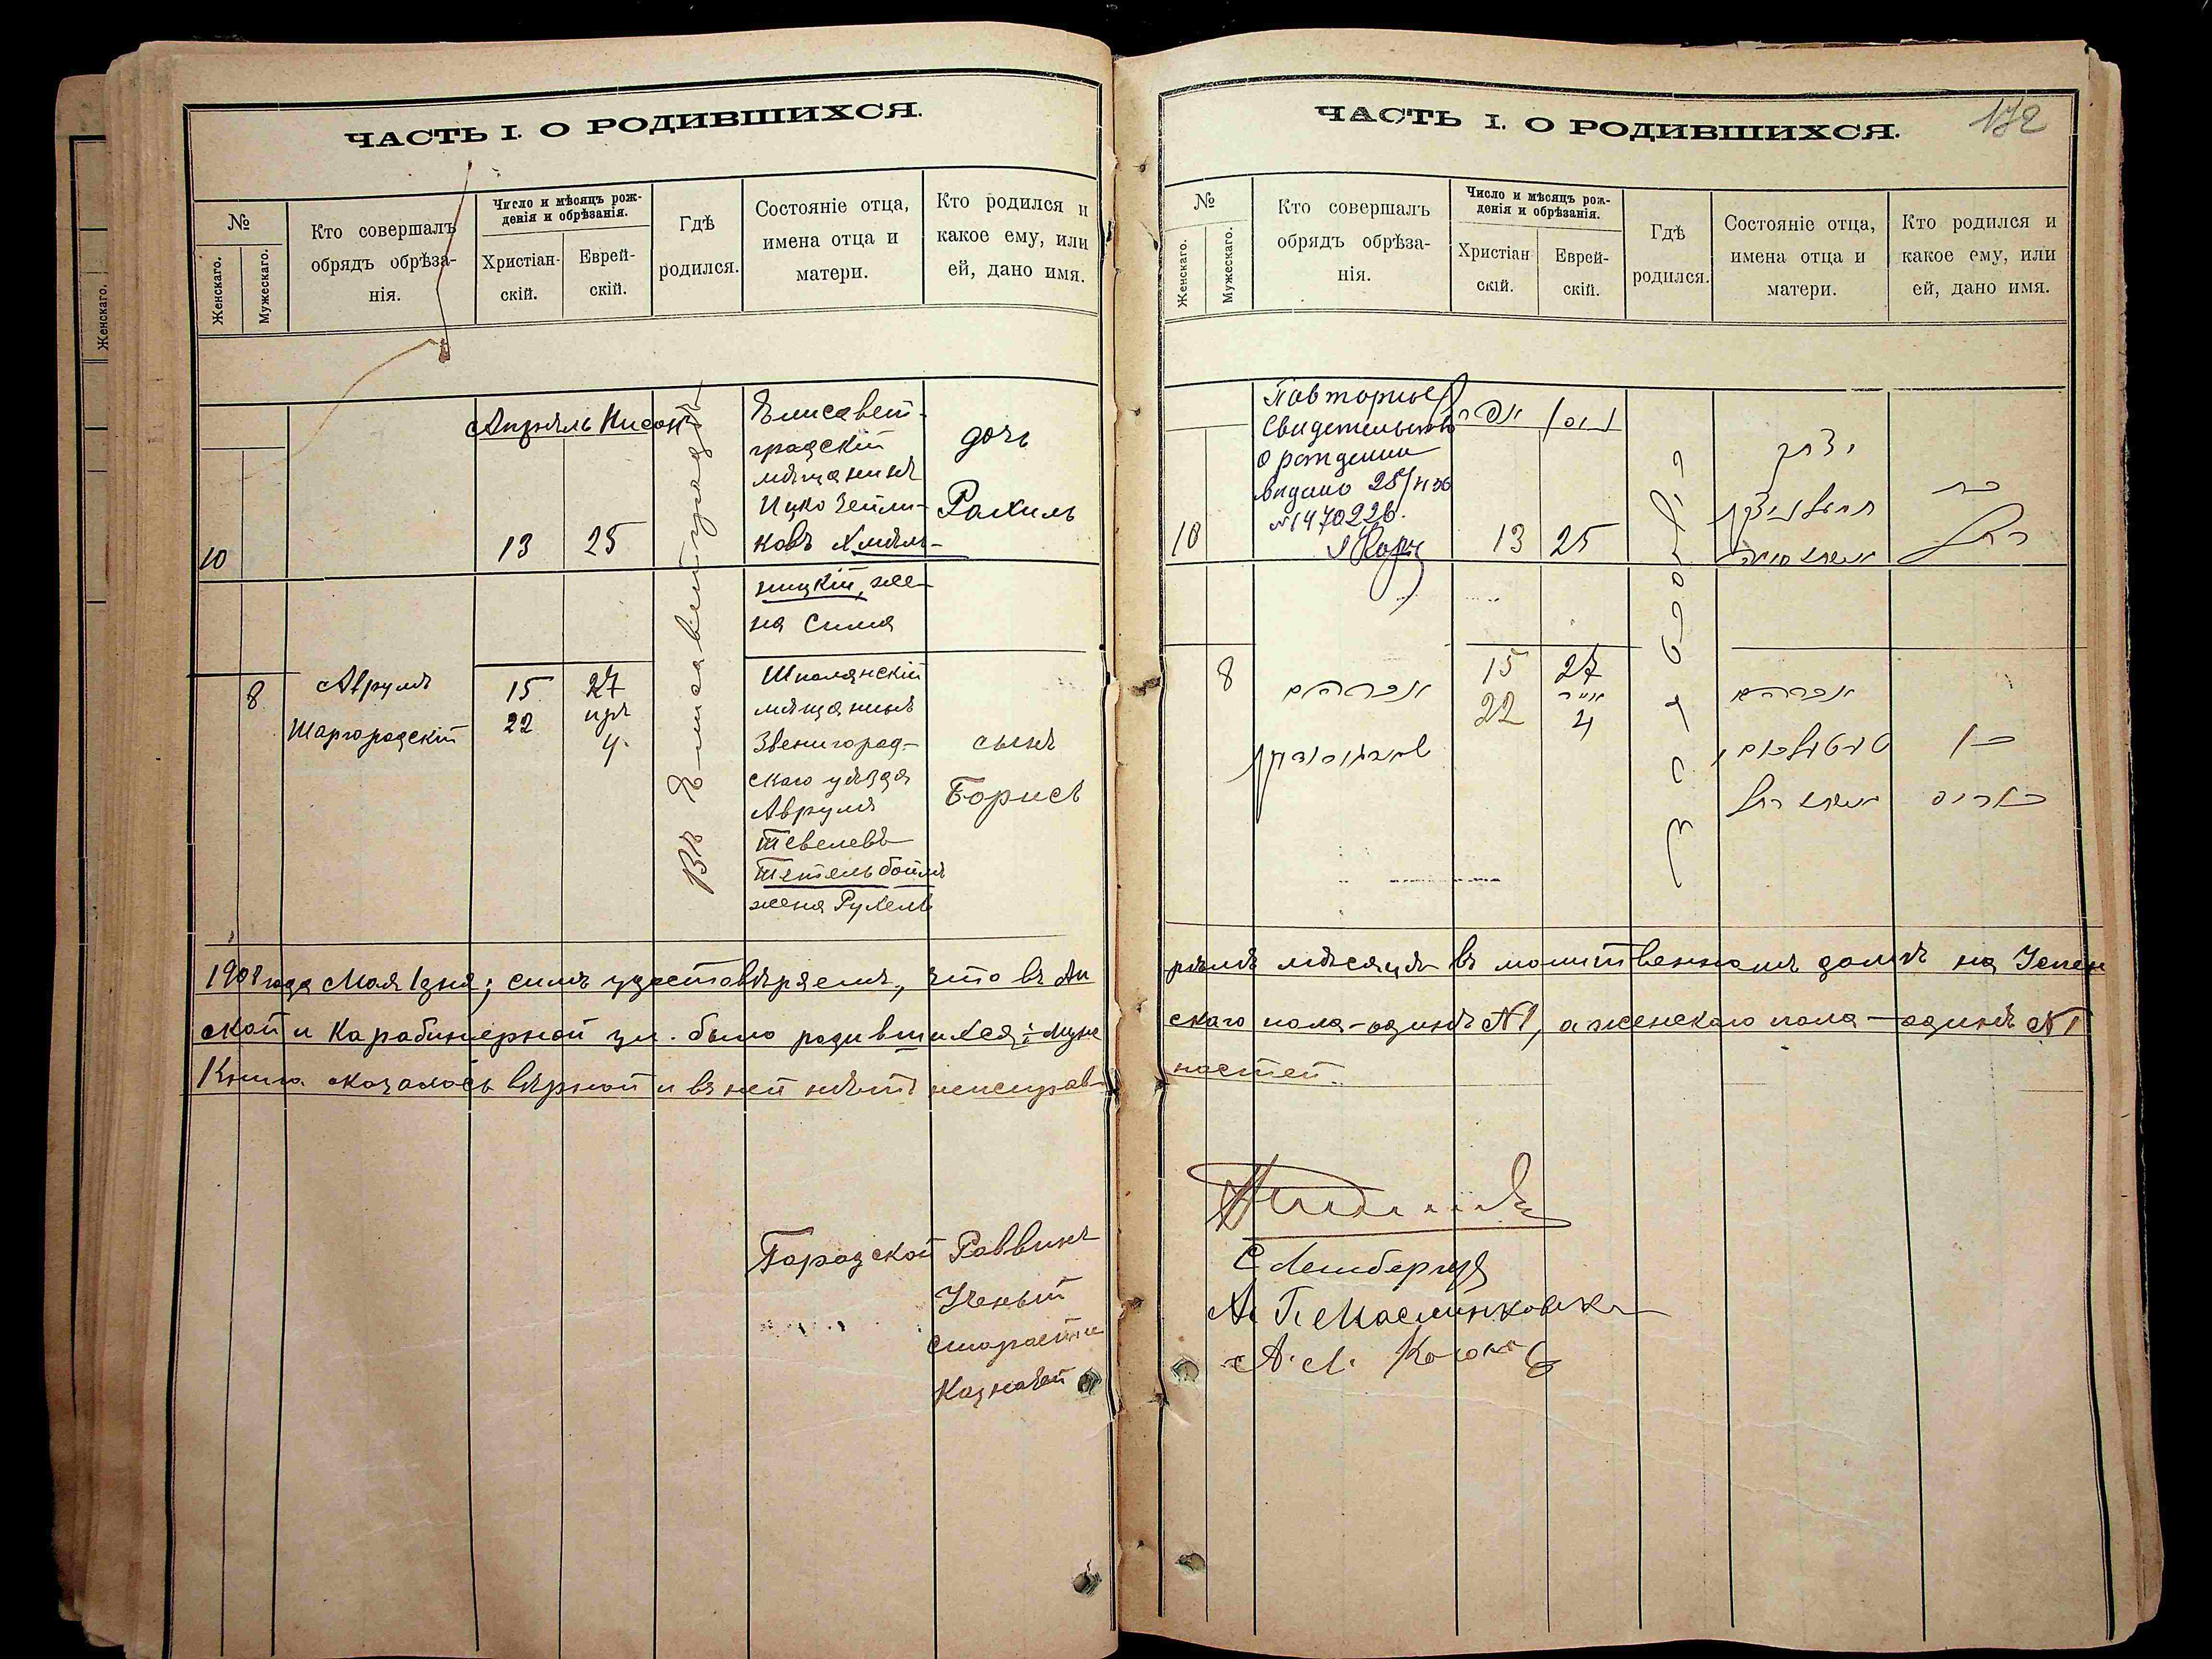 ЧАСТЬ I. О РОДИВШИХСЯ.
№
Женскаго.
Мужескаго.
Кто совершалъ
обрядъ обрѣза-
нія.
Число и мѣсяцъ рож-
денія и обрѣзанія.
Христіан-
скій.
Еврей-
скій.
Гдѣ
родился.
Состояніе отца,
имена отца и
матери.
Кто родился и
какое ему, или
ей, дано имя.
Апрѣль Нисонъ
10
13
25
Въ Елисаветградѣ
Елисавет-
градскій
мѣщанинъ
Ицко Зейли-
ковъ Хмѣль-
ницкій, же-
на Сима
дочь
Рахиль
8
Аврумъ
Шаргородскій
15
22
27
иръ
4
Шполянскій
мѣщанинъ
Звенигород-
скаго уѣзда
Аврумъ
Тевелевъ
Тетельбоймъ
жена Рухель
сынъ
Борисъ
1908 года Мая 1 дня; симъ удостовѣряемъ, что въ Ап
ской и Карабинерной ул. было родившихся: Муже
Книга оказалась вѣрной и въ ней нѣтъ неисправ-
Городской Раввинъ
Ученый
Староста
Казначей
ЧАСТЬ I. О РОДИВШИХСЯ.
172
№
Женскаго.
Мужескаго.
Кто совершалъ
обрядъ обрѣза-
нія.
Число и мѣсяцъ рож-
денія и обрѣзанія.
Христіан
скій.
Еврей-
скій.
Гдѣ
родился.
Состояніе отца,
имена отца и
матери.
Кто родился и
какое ему, или
ей, дано имя.
Повторное
Свидетельство
о рождении
видано
№
10
13
25
ניסן
יצחק
בת
רחל
8
אברהם
15
22
27
אייר
4
אברהם
בן
рѣлѣ мѣсяцѣ въ молитвенномъ домѣ на Успен
скаго пола - одинъ №1, а женскаго пола - одинъ №1
ностей.